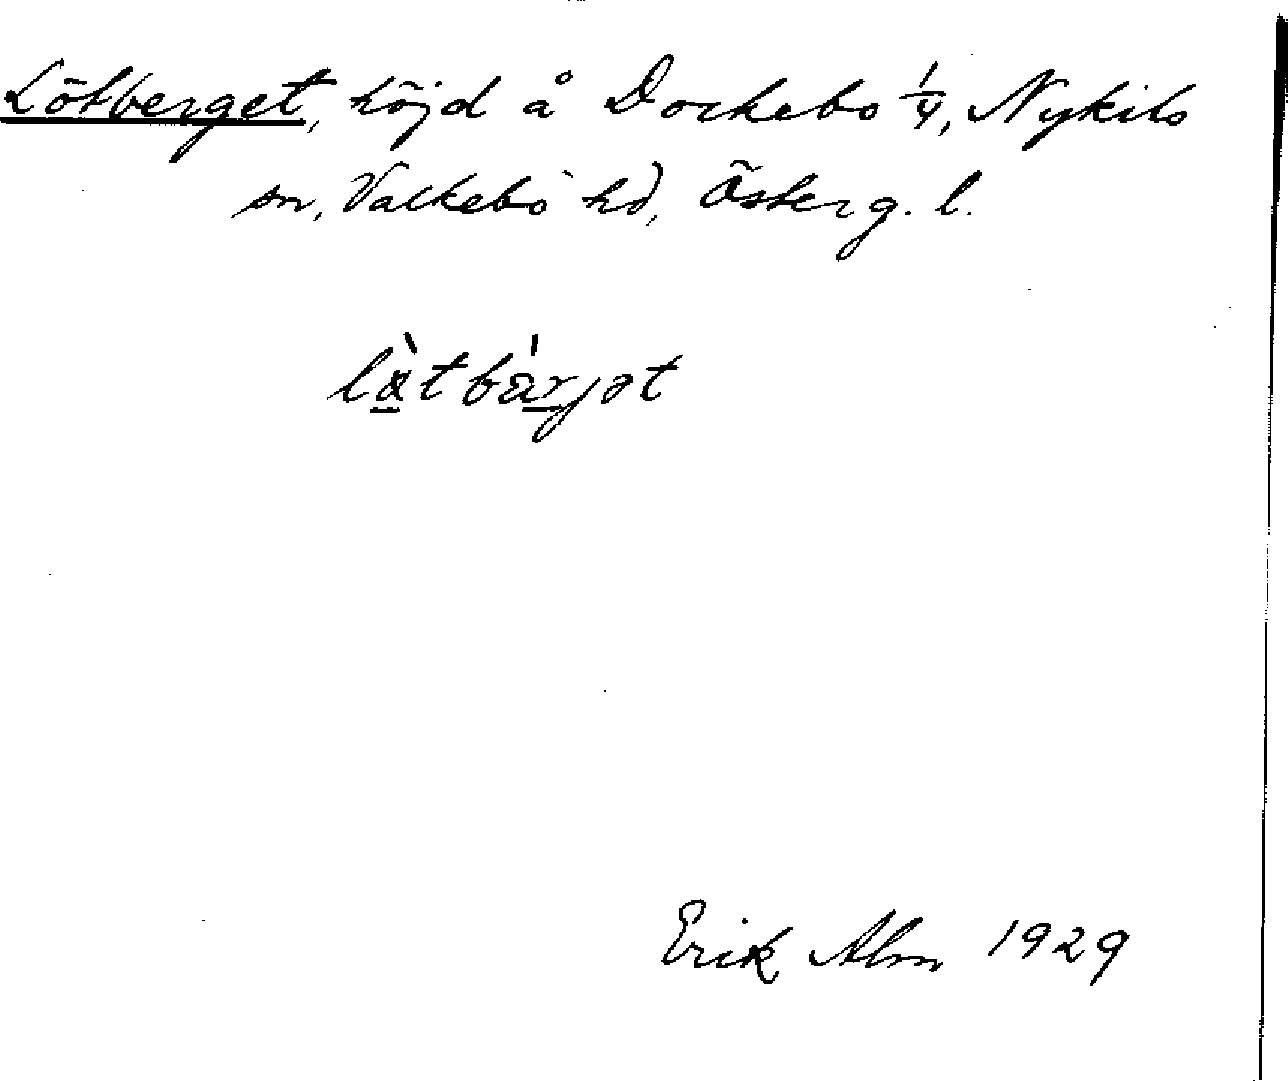 Lötberget, höjd å Dockebo 1/4, Nykils
sn, Valkebo hd, Österg. l.
Erik Alm 1929